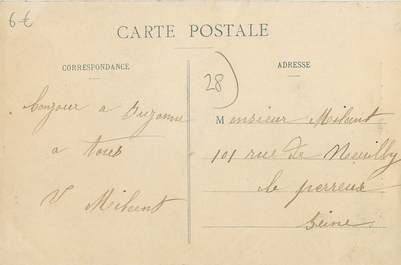 6€
CARTE POSTALE
CORRESPONDANCE
ADRESSE
28
bonjour a Suzanne
a tous
V Milcent
Monsieur Milcent
101 rue de Neuilly
le perreux
Seine